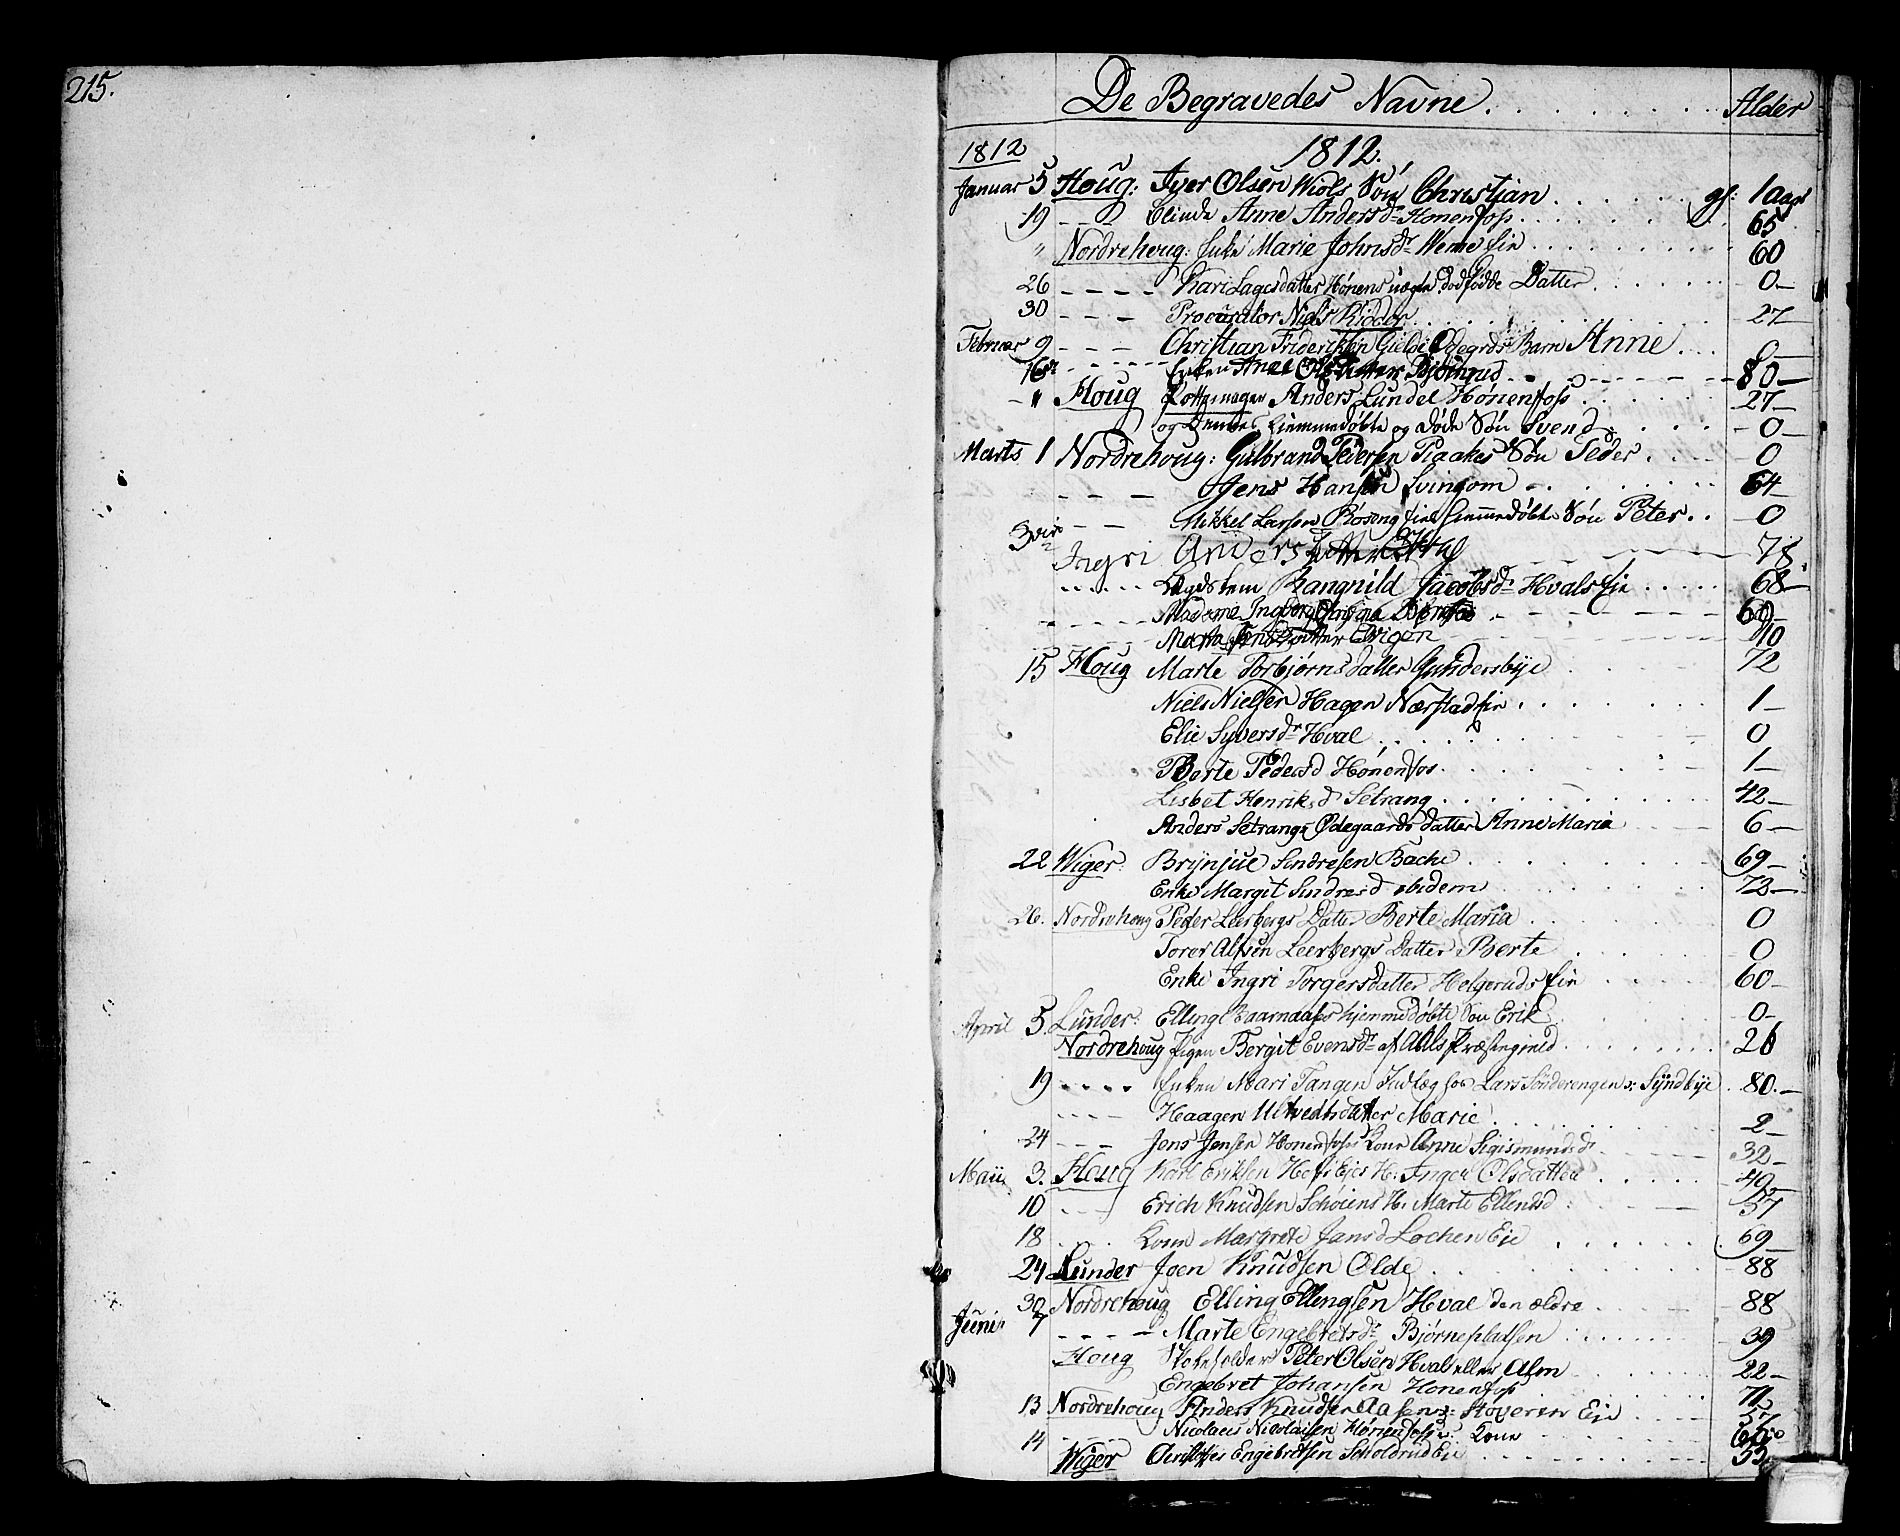 215.
De Begravedes Navne . . . . . . . Alder
1812 1812.
Januar 5 Houg: Iver Olsen Wiols Søn Christian . . . . gl: 1 Aar
19 - - - blinde Anne Andersd. Honenfoss . . . 65
" Nordrehoug: Enke Marie Johnsd. Weme Eie . . . 60
26 - - - - Kari Lagesdatter Hønens uægte dødfødde Datter . . . 0-
30 - - - Procurator Niels Ridder . . . 27-
Februar 9 - - - Christian Frideriksen Gielde Ødegrds Barn Anne . . . 0-
16 - - - Enken 80-
- " Houg Pottemager Anders Lundel Hønenfoss . . . 27-
og Dennes hiemmedøbte og døde Søn Svend . . . 0-
Marts 1 Nordrehoug: Gulbrand Pedersen Søn Peder . . . 0
- - - Jens Hansen Svingom - . . . 64-
- - Mikkel Larsen Røseng Eies hiemmedøbte Søn Peter . . 0
Ingri Anders datter 78.
. . . . . Lægdslem Rangnild Jacobsd. Hvals Eie . . . . 68-
- - - - Madame Ingborg 60-
Marta Jens Datter
15 Houg Marte Torbjørnsdatter Gundersbye 72
Niels Nielsen Hagen Nærstad Eie . . . 1-
Elie Syversdr Hval . . . 0
Berte Pedersd Hønenfos. . . 1-
Lisbet Henriksd Setrang . . . 42-
Anders Setrangs Ødegaards datter Anne Maria . . . 6-
22 Wiger: Brynjul Sendresen Bache . . . 69-
Enke Margit Sindresd ibidem . . . 73-
26. Nordrehoug Peder Leerbergs Datter Berte Maria . . . 0
Torer Alfsen Leerbergs Datter Berte . . . 0
Enke Ingri Torgersdatter Helgeruds Eie . . . 60-
April 5. Lunder: Elling hjemmedøbte Søn Erik . . . 0-
Nordrehoug Pigen Bergit Evensdr af Aals Præstegield . . . 26
19 - - - - Enken Mari Tangen Indlæg hos Lars Sønderengen : Syndbye . 80.-
- - - - Haagen Ultvedts datter Marie . . . 2-
24 - - - Jens Jensen Honenfoss Kone Anne Sigismundsd. . . 32-
Maii 3. Houg Karl Eriksen H. Inger Olsdatter . . . 40-
10 - - Erich Knudsen Schøiens H. Marte Ellendsd . . . 57
18 . . . . Kone Margrete Jansd Lochen Eie . . . 69-
24 Lunder Joen Knudsen Olde . . . 88
30 Nordrehoug Elling Ellingsen Hval den ældre . . . 88
Juni 7 - - - - Marte Engebretsdr. Bjørnepladsen . . . 39
Houg Skoleholder Peter Olsen Hval eller Alm . . . 22-
Engebret Johansen Honenfoss
13 Nordrehoug Anders Knudsen Aasen : Stoveren Eie . . .
14 - - - - Nicolaus Nicolaisen Hønenfoss : Kone
Wiger Engebretsen Scholdrud Eie . . . 53